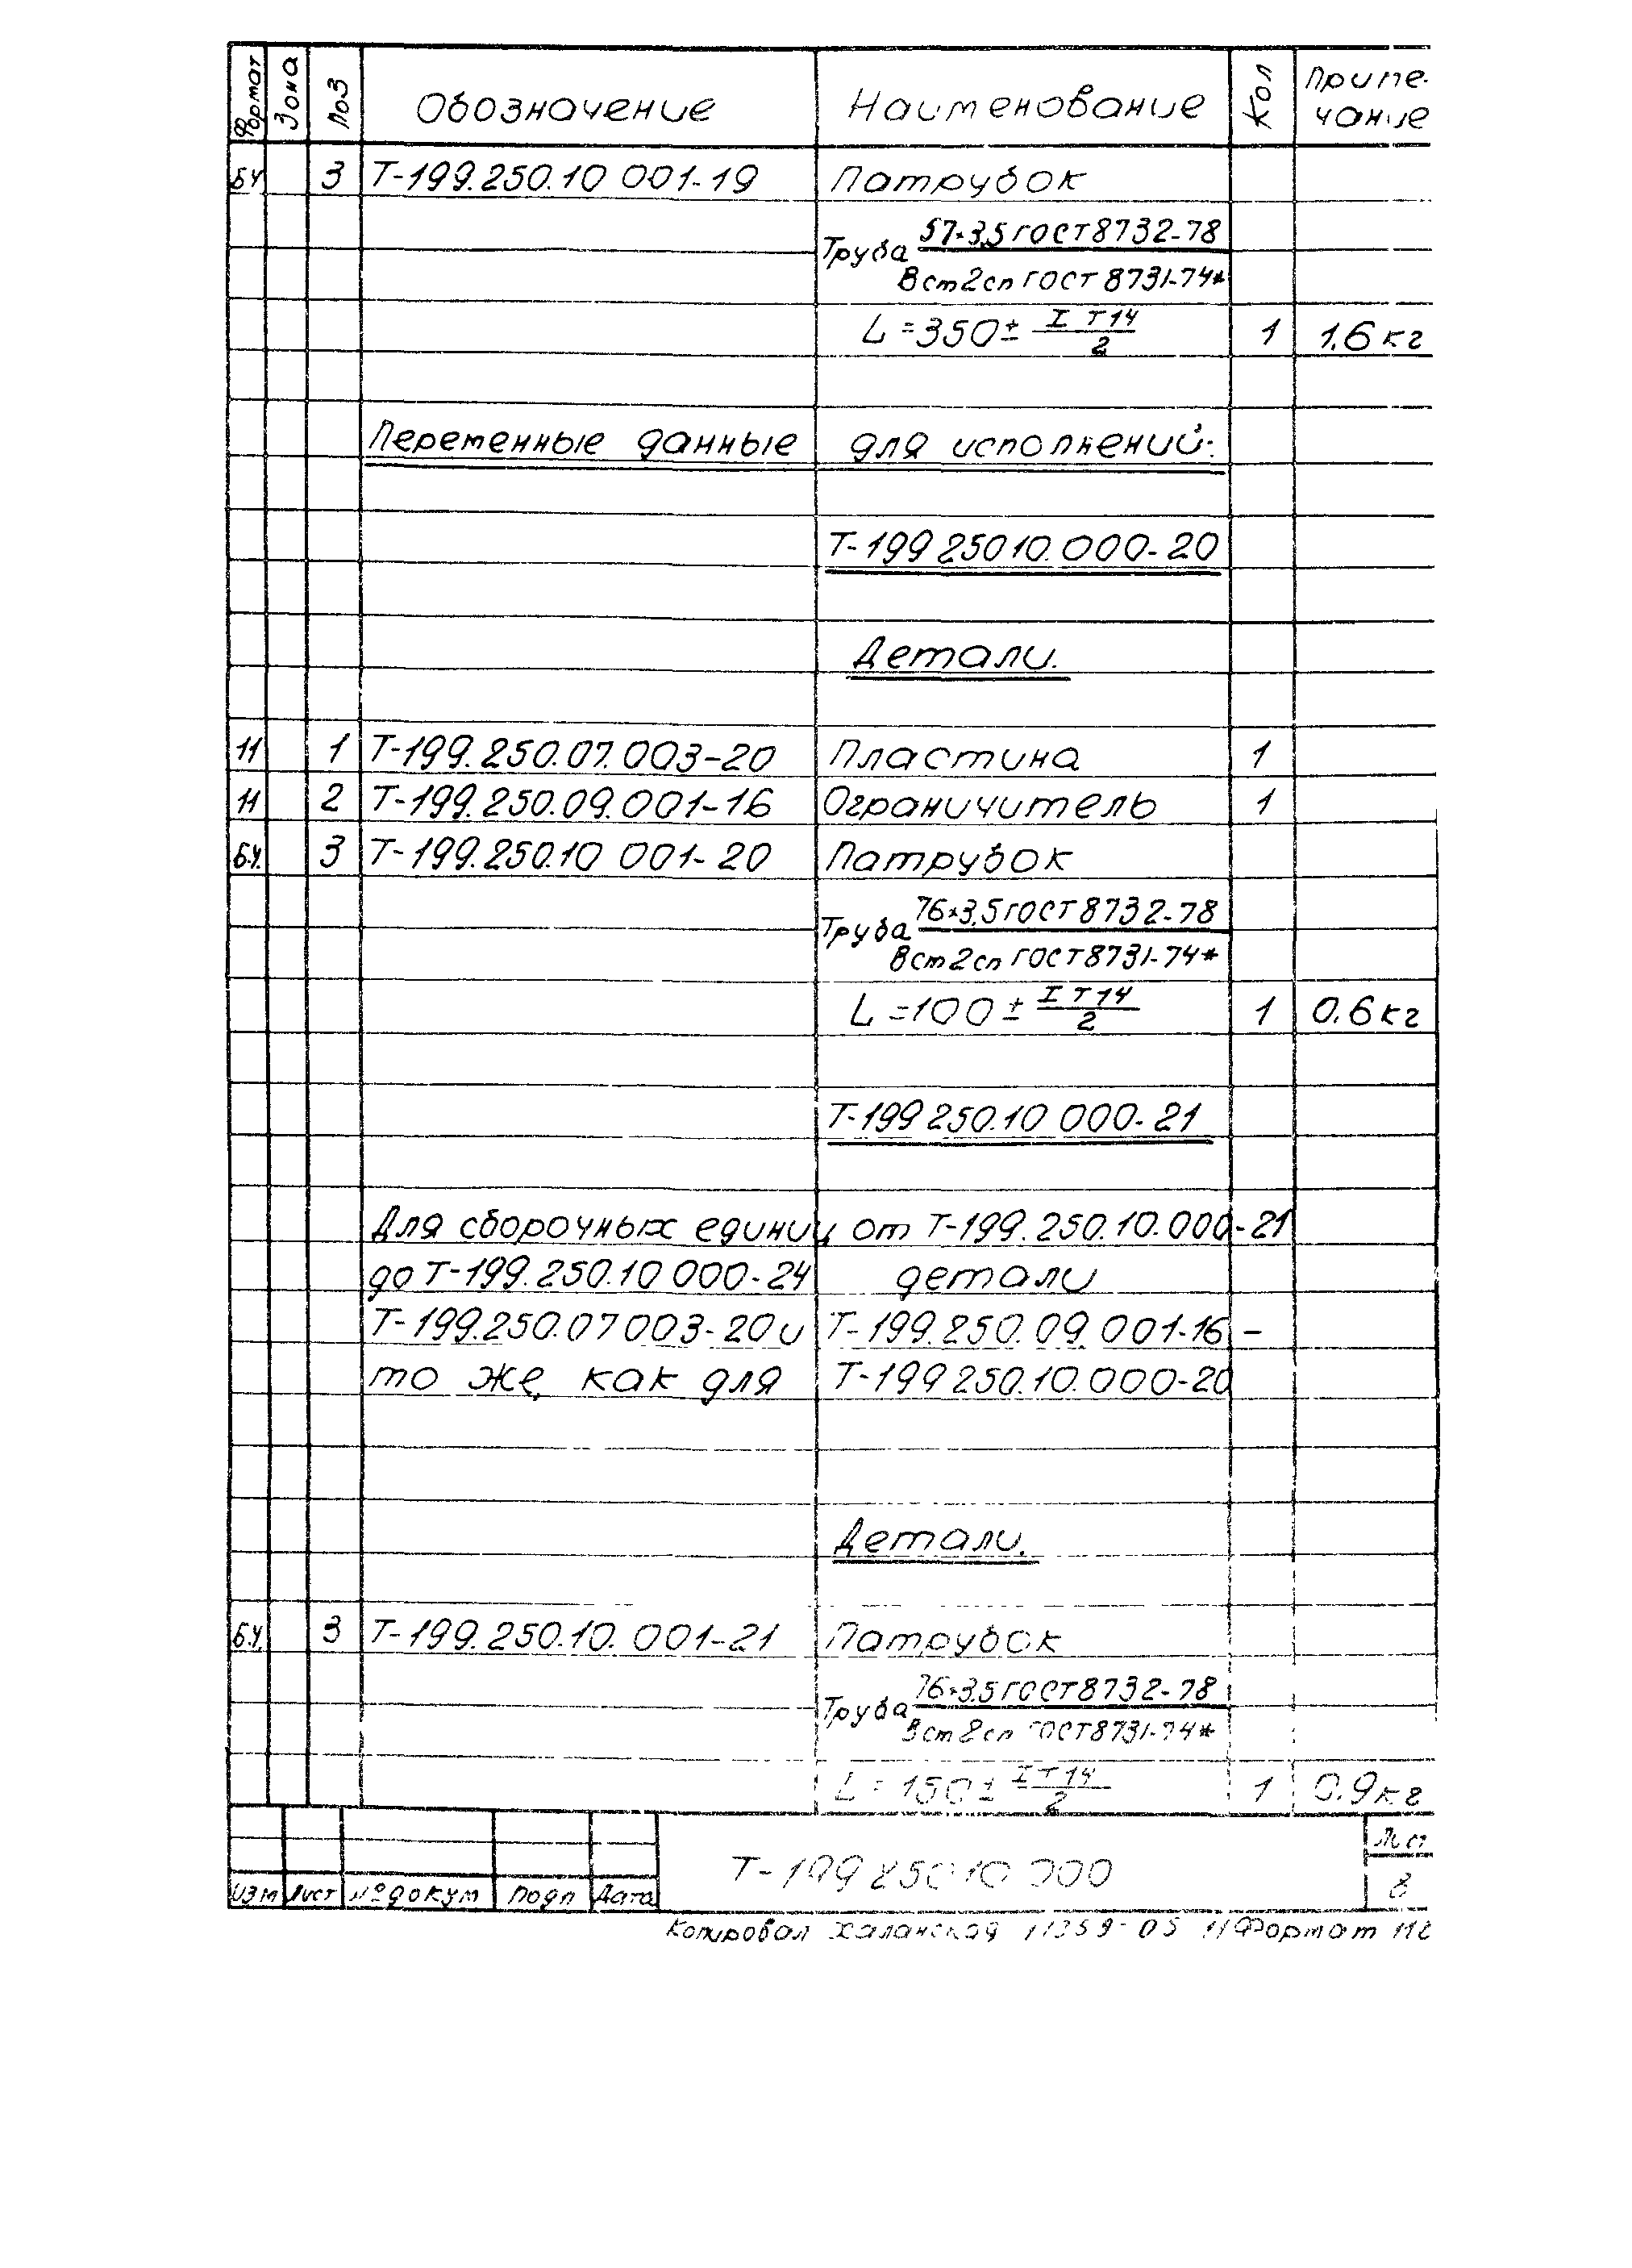 Формат Зона Поз Обозначение Наименование Кол Приме-
чание
БЧ 3 Т-199.250.10 001-19 Патрубок
Труба 57×3,5 ГОСТ 8732-78
Вст2сп ГОСТ 8731-74*
L=350± IT14/2 1 1,6 кг
Переменные данные для исполнений:
Т-199 250 10.000-20
Детали.
11 1 Т-199.250.07.003-20 Пластина 1
11 2 Т-199.250.09.001-16 Ограничитель 1
Б.Ч. 3 Т-199.250.10 001-20 Патрубок
Труба 76×3,5 ГОСТ 8732-78
Вст2сп ГОСТ 8731-74*
L=100± IT14/2 1 0,6 кг
Т-199 250.10 000-21
Для сборочных единиц от Т-199.250.10.000-21
до Т-199.250.10 000-24 детали
Т-199.250.07 003-20 и Т-199.250.09.001-16 –
то же, как для Т-199 250.10.000-20
Детали.
Б.Ч. 3 Т-199.250.10.001-21 Патрубок
Труба 76×3,5 ГОСТ 8732-78
Вст2сп ГОСТ 8731-74*
L=150± IT14/2 1 0,9 кг
Изм Лист № докум Подп Дата Т-199 250 10 000 Лист
8
Копировал 17359-05 Формат 11